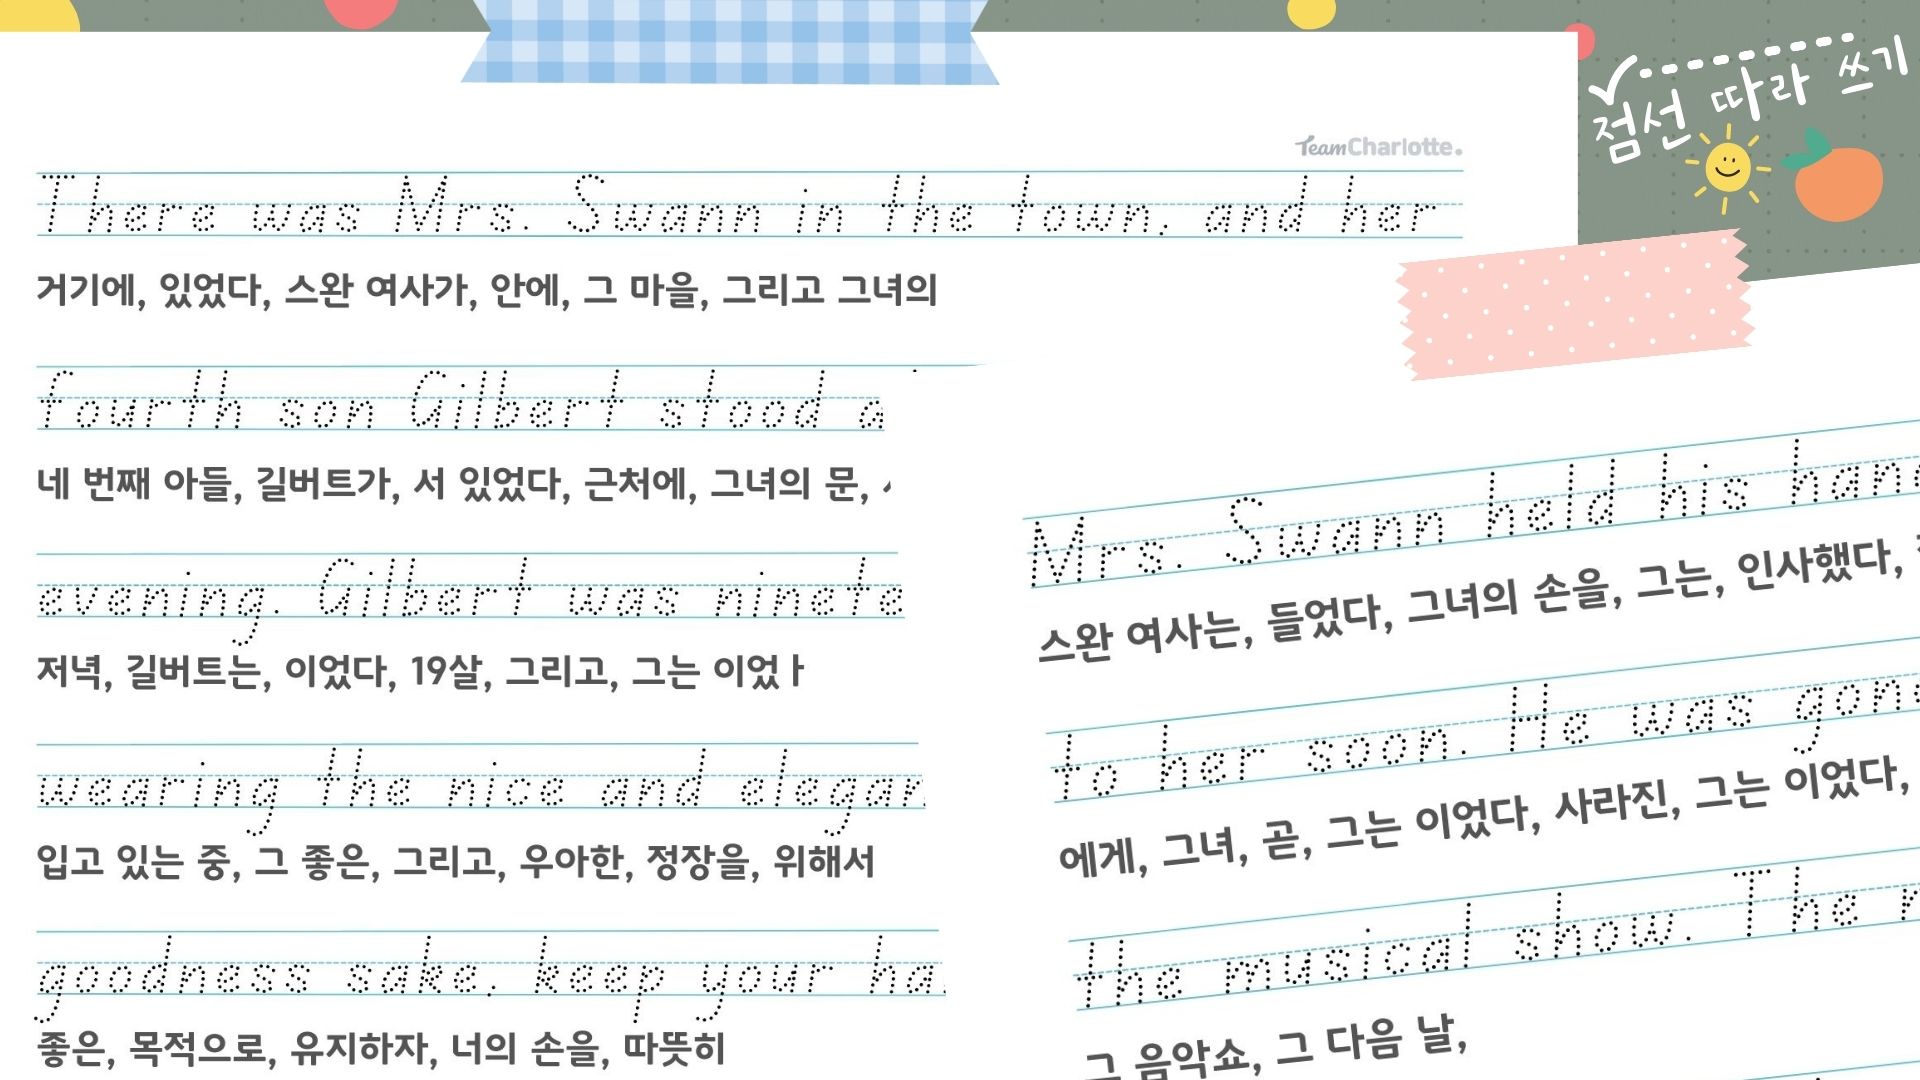 점선 따라 쓰기
TeamCharlotte.
There was Mrs. Swann in the town, and her
거기에, 있었다, 스완 여사가, 안에, 그 마을, 그리고 그녀의
fourth son Gilbert stood
네 번째 아들, 길버트가, 서 있었다, 근처에, 그녀의 문,
evening. Gilbert was
저녁, 길버트는, 이었다, 19살, 그리고, 그는
wearing the nice and
입고 있는 중, 그 좋은, 그리고, 우아한, 정장을, 위해서
goodness sake, keep your
좋은, 목적으로, 유지하자, 너의 손을, 따뜻히
Mrs. Swann held his
스완 여사는, 들었다, 그녀의 손을, 그는, 인사했다,
to her soon. He was
에게, 그녀, 곧, 그는 이었다, 사라진, 그는 이었다,
the musical show. The
그 음악쇼, 그 다음 날,